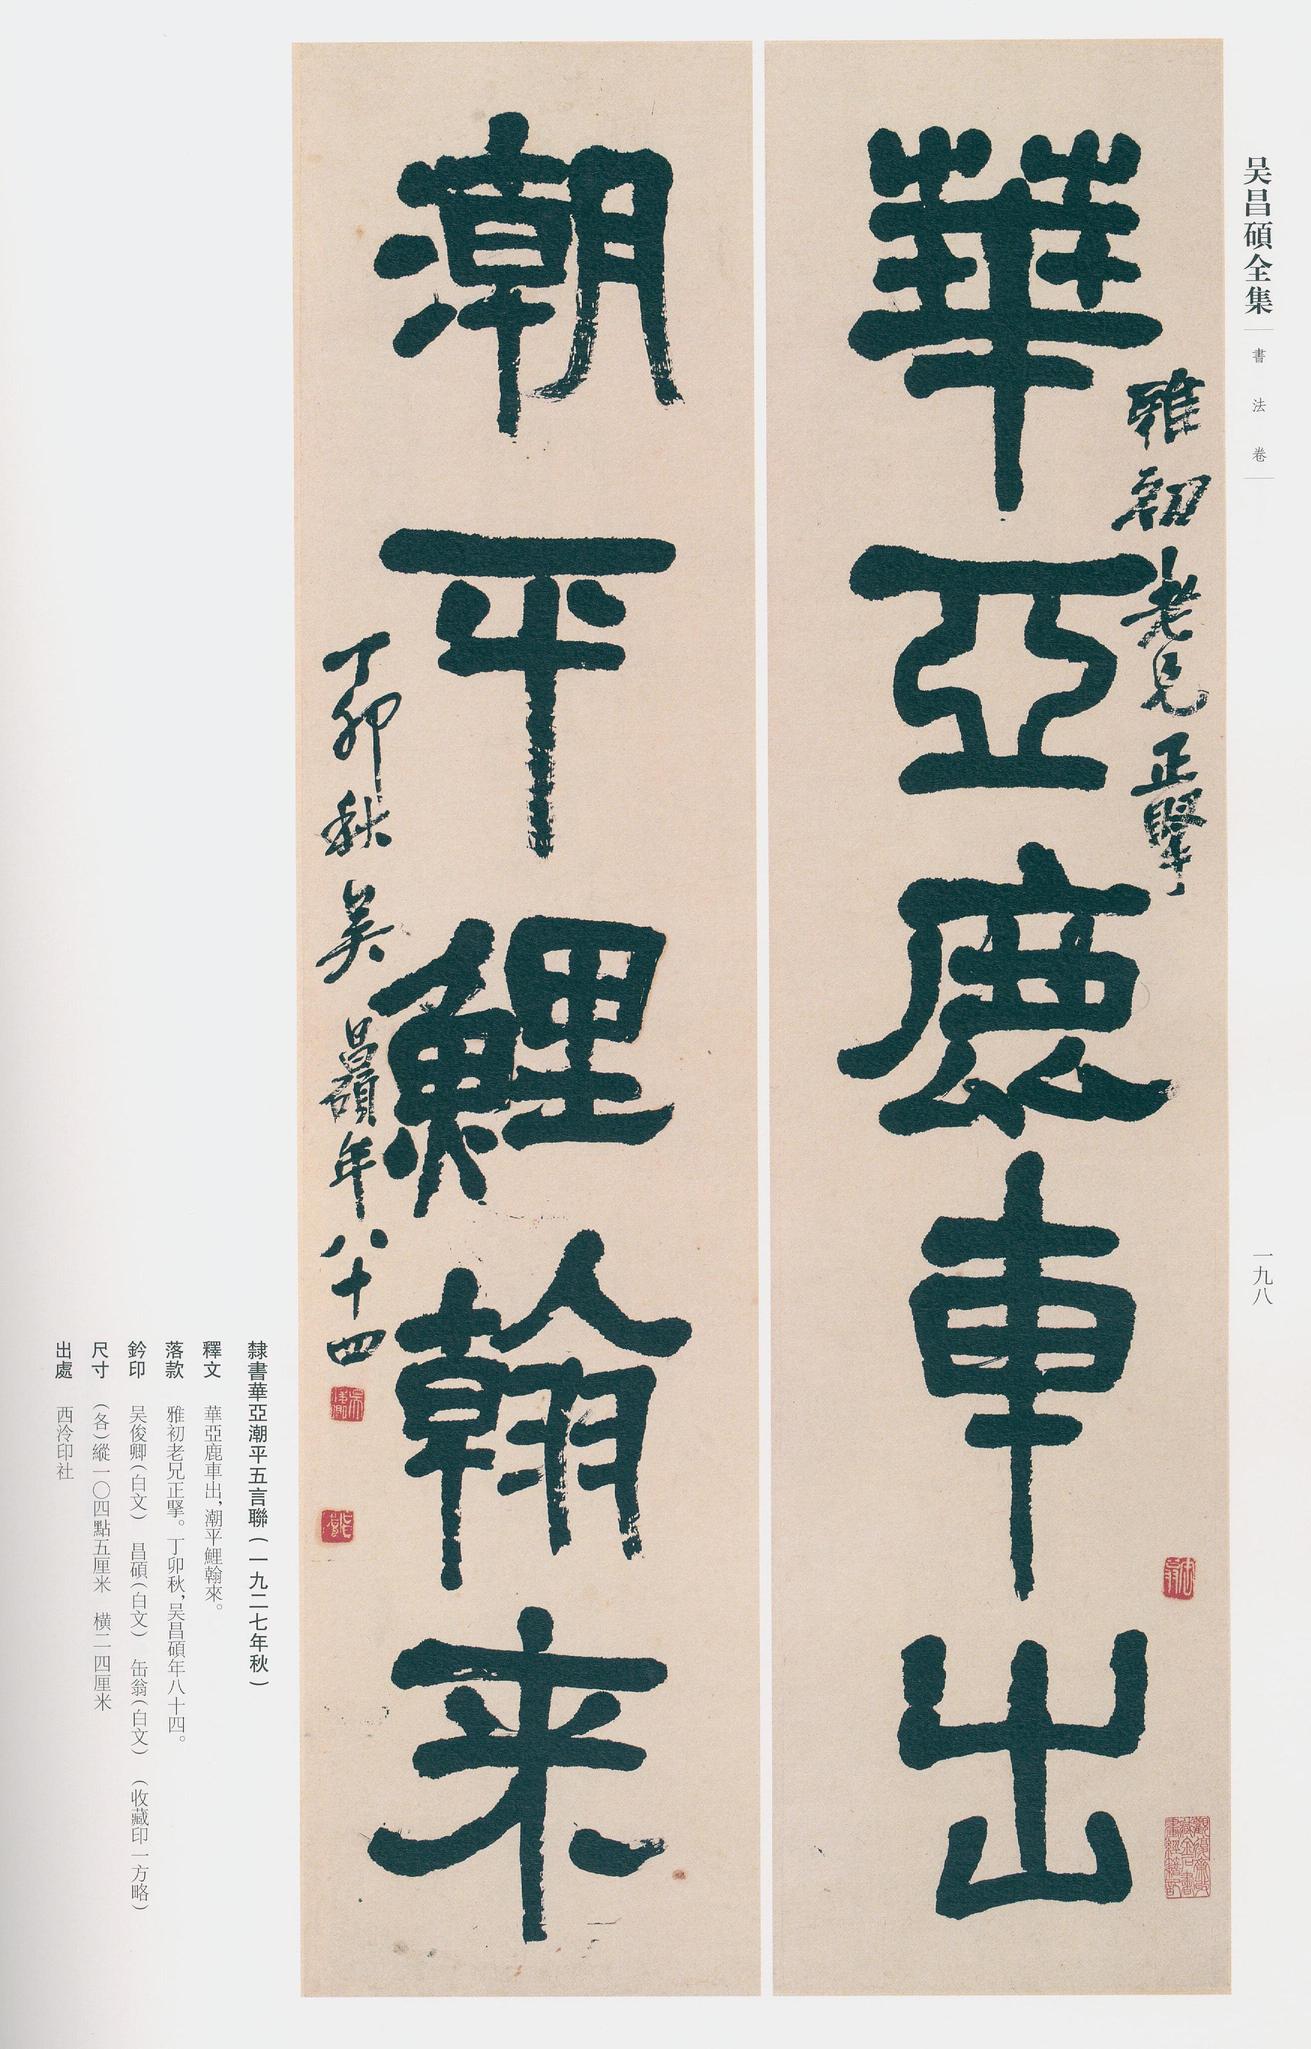 吴昌碩全集
書法卷
一九八
華亞鹿車出
雅初老兄正掔
潮平鯉翰来
丁卯秋吴昌碩年八十四
隸書華亞潮平五言聯(一九二七年秋)
釋文 華亞鹿車出,潮平鯉翰來。
落款 雅初老兄正掔。丁卯秋,吴昌碩年八十四。
鈐印 吴俊卿(白文) 昌碩(白文) 缶翁(白文) (收藏印一方略)
尺寸 (各)縱一〇四點五厘米 横二四厘米
出處 西泠印社